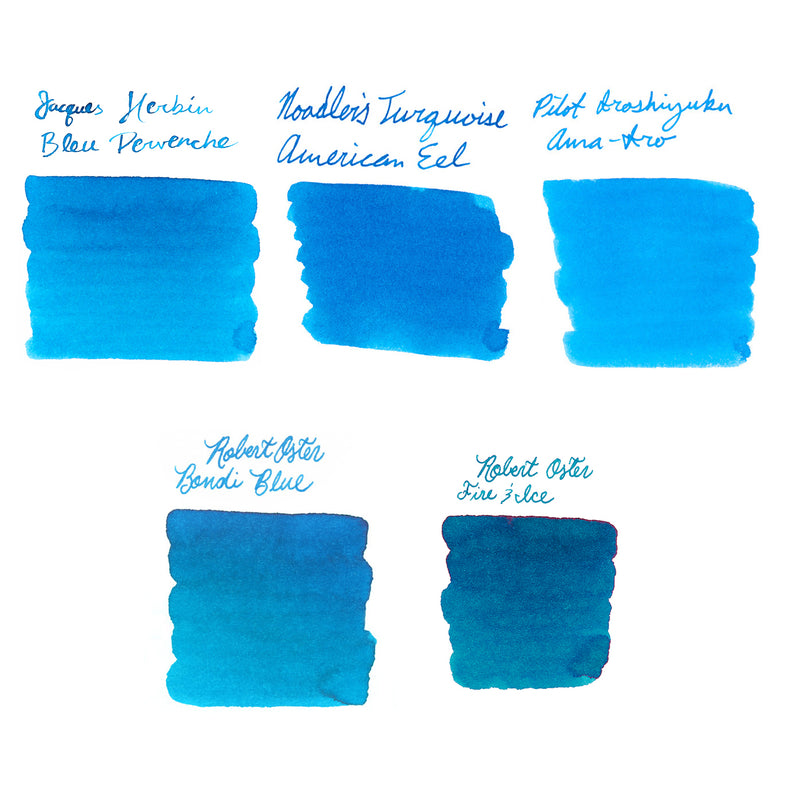 Jacques Herbin
Bleu Pervenche
Noodler's Turquoise
American Eel
Pilot Iroshizuku
Ama-Iro
Robert Oster
Bondi Blue
Robert Oster
Fire & Ice